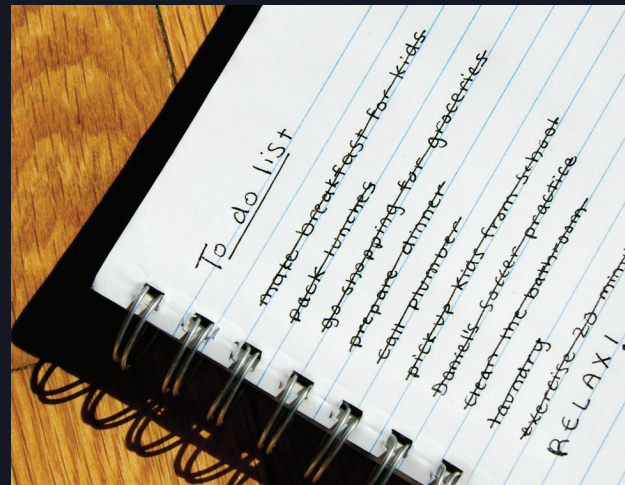 To do list
make breakfast for kids
pack lunches
go shopping for groceries
prepare dinner
call plumber
pick up kids from school
Daniel's soccer practice
clean the bathroom
laundry
exercise 20
RELAX!